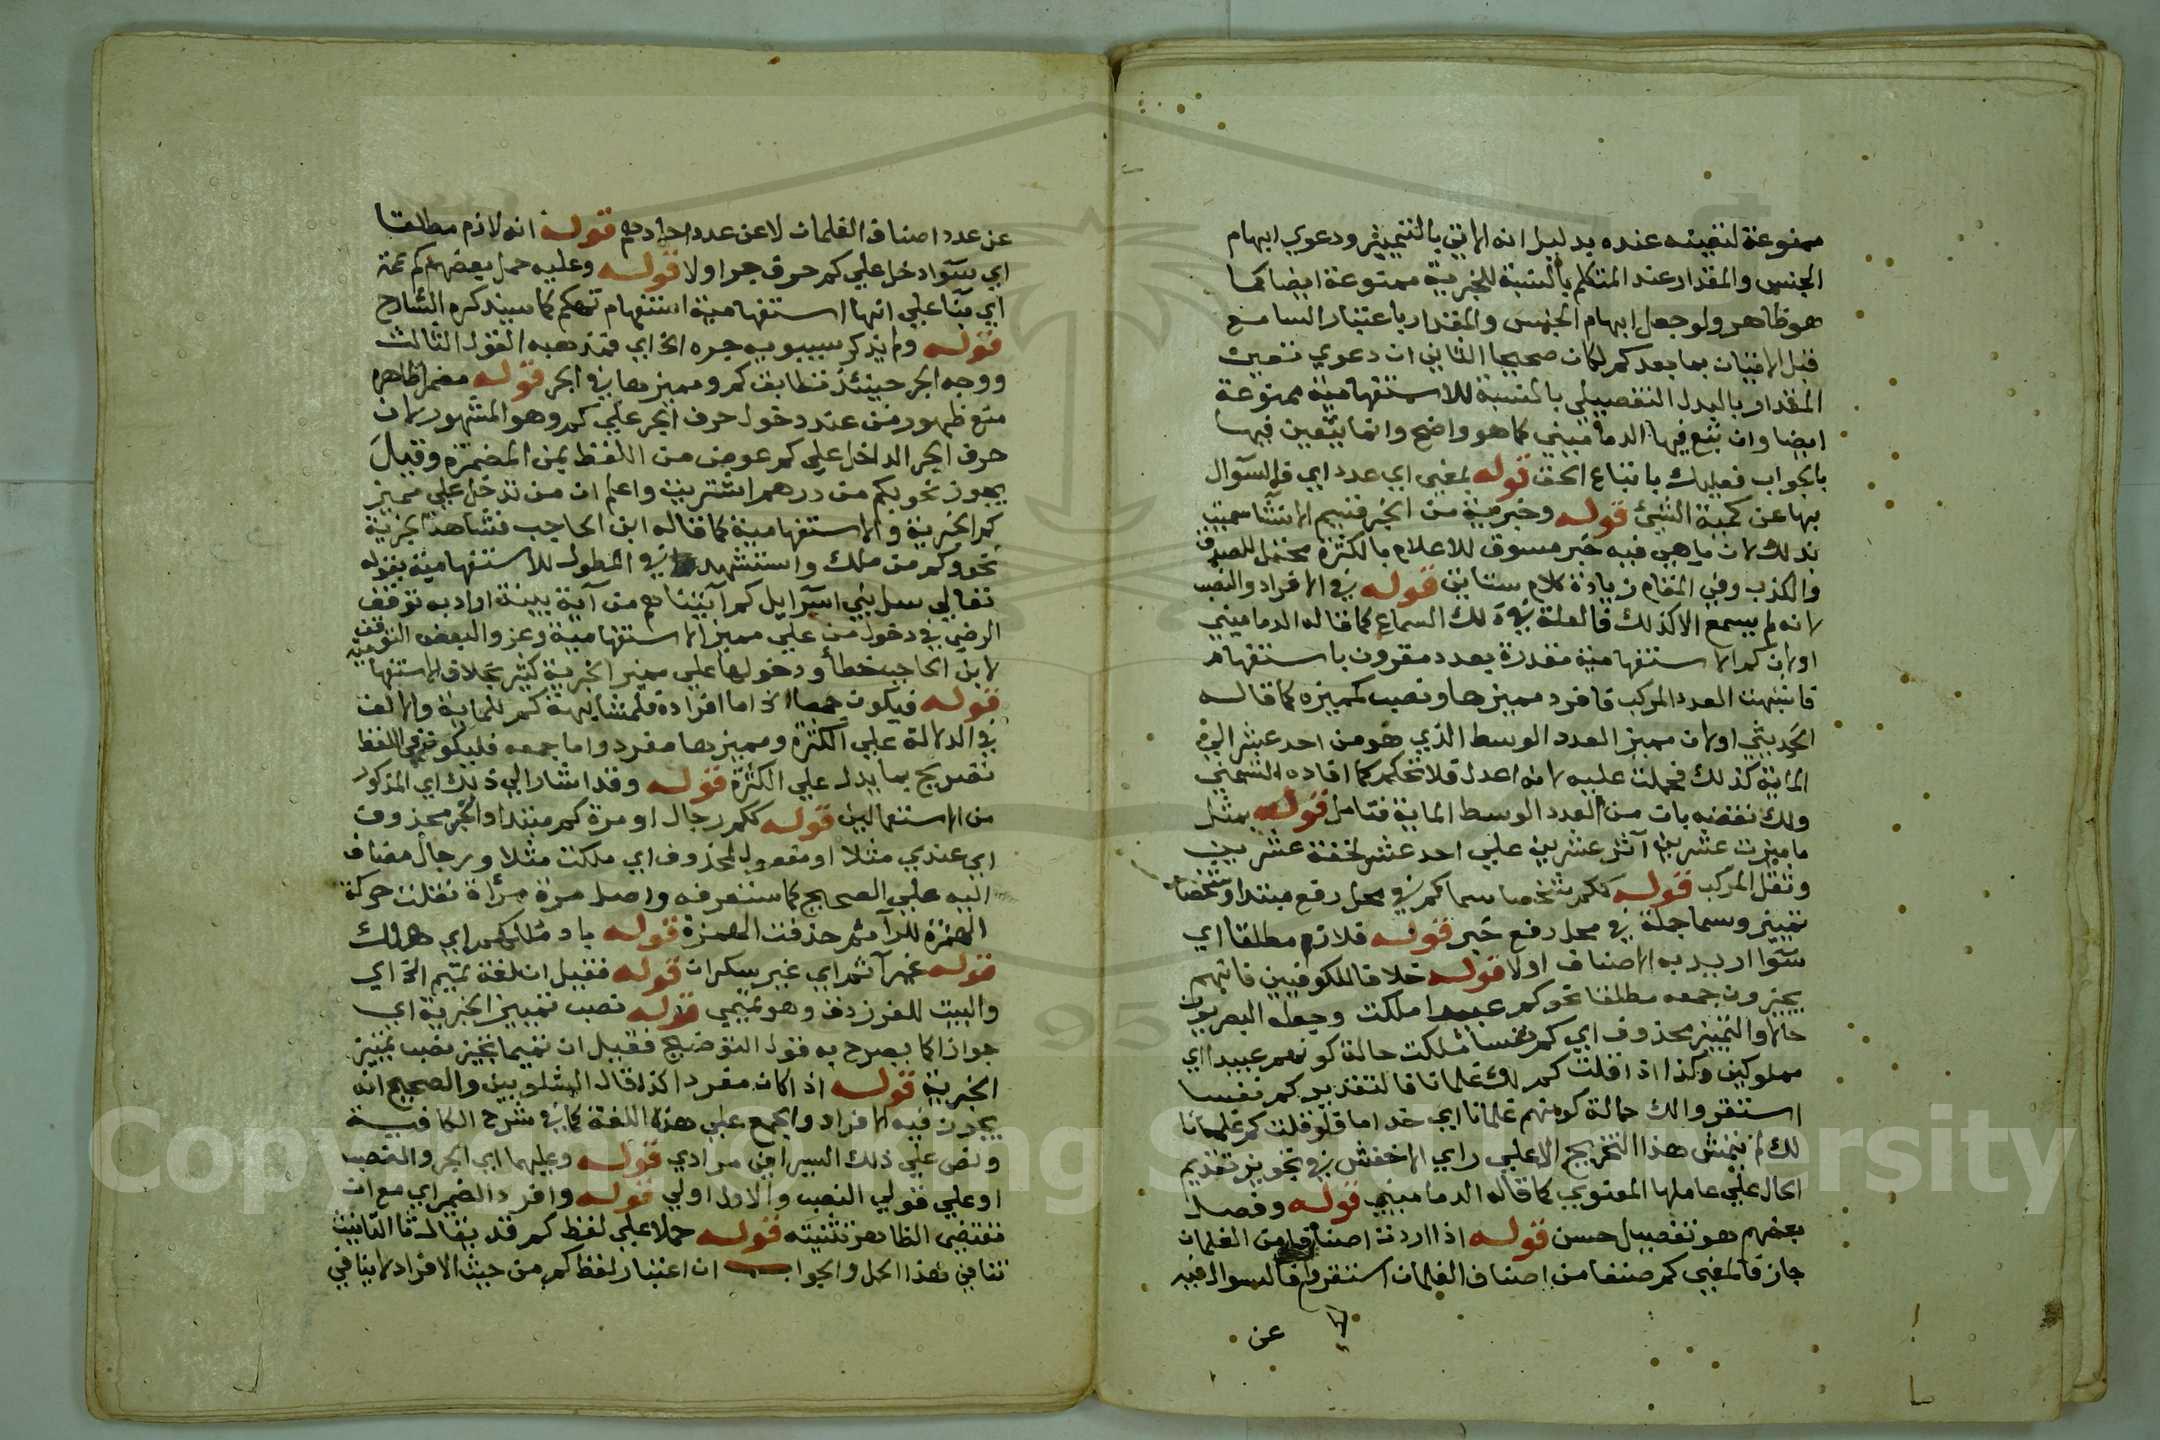 ممنوعة لتعينه عنده بدليل انه الاتي بالتمييز ودعوي ابهام
الجنس والمقدار عند المتكلم بالنسبة للخبرية ممنوعة ايضا كما
هو ظاهر ولو جعل ابهام الجنس والمقدار باعتبار السامع
قبل الاتيان بما بعد كم لكان صحيحا الثاني ان دعوي تعين
المقدار بالبدل التفصيلي بالنسبة للاستفهامية ممنوعة
ايضا وان تبع فيها الدماميني كما هو واضح وانما يتعين فيها
بالجواب فعليك باتباع الحق قوله بمعني اي عدد اي فالسؤال
بها عن كمية الشئ قوله وخبرية من الخبر قسيم الانشا سميت
بذلك لان ما هي فيه خبر مسوق للاعلام بالكثرة محتمل للصدق
والكذب وفي المقام زيادة كلام ستاتي قوله في الافراد والنصب
لانه لم يسمع الا كذلك فالعلة في ذلك السماع كما قاله الدماميني
اولان كم الاستفهامية مقدرة بعدد مقرون باستفهام
فاشبهت العدد المركب فافرد مميزها ونصب كمميزه كما قاله
الحديثي اولان مميز العدد الوسط الذي هو من احد عشر الي
الماية كذلك فحملت عليه لانه اعدل فلا تحكم كما افاده الشمني
ولك نقضه بان من العدد الوسط الماية فتامل قوله بمثل
ما ميزت عشرين آثر عشرين علي احد عشر لخفة عشرين
وثقل المركب قوله ككم شخصا سما كم في محل رفع مبتدا وشخصا
تمييز وسما جملة في محل رفع خبر قوله فلازم مطلقا اي
سوآ اريد به الاصناف اولا قوله خلافا للكوفيين فانهم
يجيزون جمعه مطلقا نحو كم عبيدا ملكت وجعله البصريون
حالا والتمييز محذوف اي كم نفسا ملكت حالة كونهم عبيدا اي
مملوكين وكذا اذا قلت كم لك غلمانا فالتقدير كم نفسا
استقروا لك حالة كونهم غلمانا اي خداما فلو قلت كم غلمانا
لك لم يتمش هذا التخريج الا علي راي الاخفش في تجويز تقديم
الحال علي عاملها المعنوي كما قاله الدماميني قوله وفصل
بعضهم هو تفصيل حسن قوله اذا اردت اصنافا من الغلمان
جاز فالمعني كم صنفا من اصناف الغلمان استقروا فالسوال فيه
عن
عن عدد اصناف الغلمان لا عن عدد احادهم قوله انه لازم مطلقا
اي سوآ دخل علي كم حرف جر اولا قوله وعليه حمل بعضهم كم عمة
اي بنا علي انها استفهامية استفهام تهكم كما سيذكره الشارح
قوله ولم يذكر سيبويه جره الخ اي فمذهبه القول الثالث
ووجه الجر حينئذ تطابق كم ومميزها في الجر قوله مضمرا ظاهره
منع ظهور من عند دخول حرف الجر علي كم وهو المشهور لان
حرف الجر الداخل علي كم عوض من اللفظ بمن المضمرة وقيل
يجوز نحو بكم من درهم اشتريت واعلم ان من تدخل علي مميز
كم الخبرية والاستفهامية كما قاله ابن الحاجب فشاهد الخبرية
نحو وكم من ملك واستشهد في المطول للاستفهامية بقوله
تعالي سل بني اسرآيل كم آتيناهم من آية بينة اوادبه توقف
الرضي في دخول من علي مميز الاستفهامية وعزو البعض التوقف
لابن الحاجب خطأ ودخولها علي مميز الخبرية كثير بخلاف الاستفهامية
قوله فيكون جمعا الخ اما افراده فلمشابهة كم للماية والالف
في الدلالة علي الكثرة ومميزها مفرد واما جمعه فليكون في اللفظ
تصريح بما يدل علي الكثرة قوله وقد اشار الي ذلك اي المذكور
من الاستعمالين قوله ككم رجال او مرة كم مبتدا والخبر محذوف
اي عندي مثلا او مفعول لمحذوف اي ملكت مثلا ورجال مضاف
اليه علي الصحيح كما ستعرفه واصل مرة مرأة نقلت حركة
الهمزة للرآ ثم حذفت الهمزة قوله باد ملكهم اي هلك
قوله غير آثم اي غير سكران قوله فقيل ان لغة تميم الخ اي
والبيت للفرزدق وهو تميمي قوله نصب تمييز الخبرية اي
جوازا كما يصرح به قول التوضيح فقيل ان تميما تجيز نصب تمييز
الخبرية قوله اذا كان مفردا كذا قال الشلوبين والصحيح انه
يجوز فيه الافراد والجمع علي هذه اللغة كما في شرح الكافية
ونص علي ذلك السيرافي مرادي قوله وعليهما اي الجر والنصب
او علي قولي النصب والاول اولي قوله وافرد الضمير اي مع ان
مقتضي الظاهر تثنيته قوله حملا علي لفظ كم قد يقال تا التانيث
تنافي هذا الحمل والجواب ان اعتبار لفظ كم من حيث الافراد لا ينافي
Copyright © King Saud University